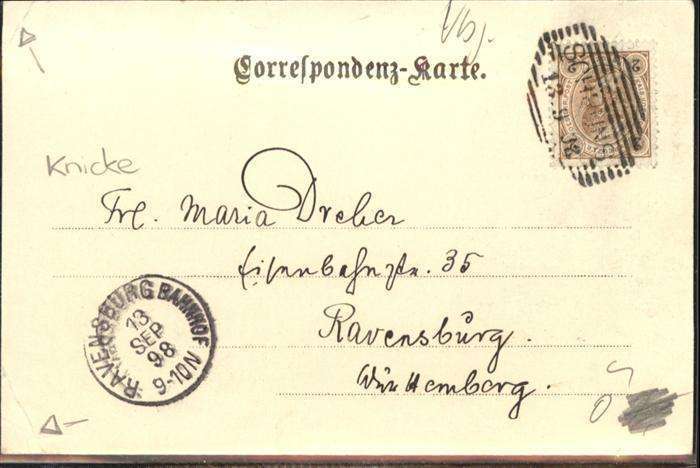 Vbg.
Correspondenz-Karte.
Knicke
Frl. Maria Dreher
Eisenbahnstr. 35
Ravensburg.
Württemberg.
RAVENSBURG BAHNHOF
13
SEP
98
9-10 N
13 9 98
2
2